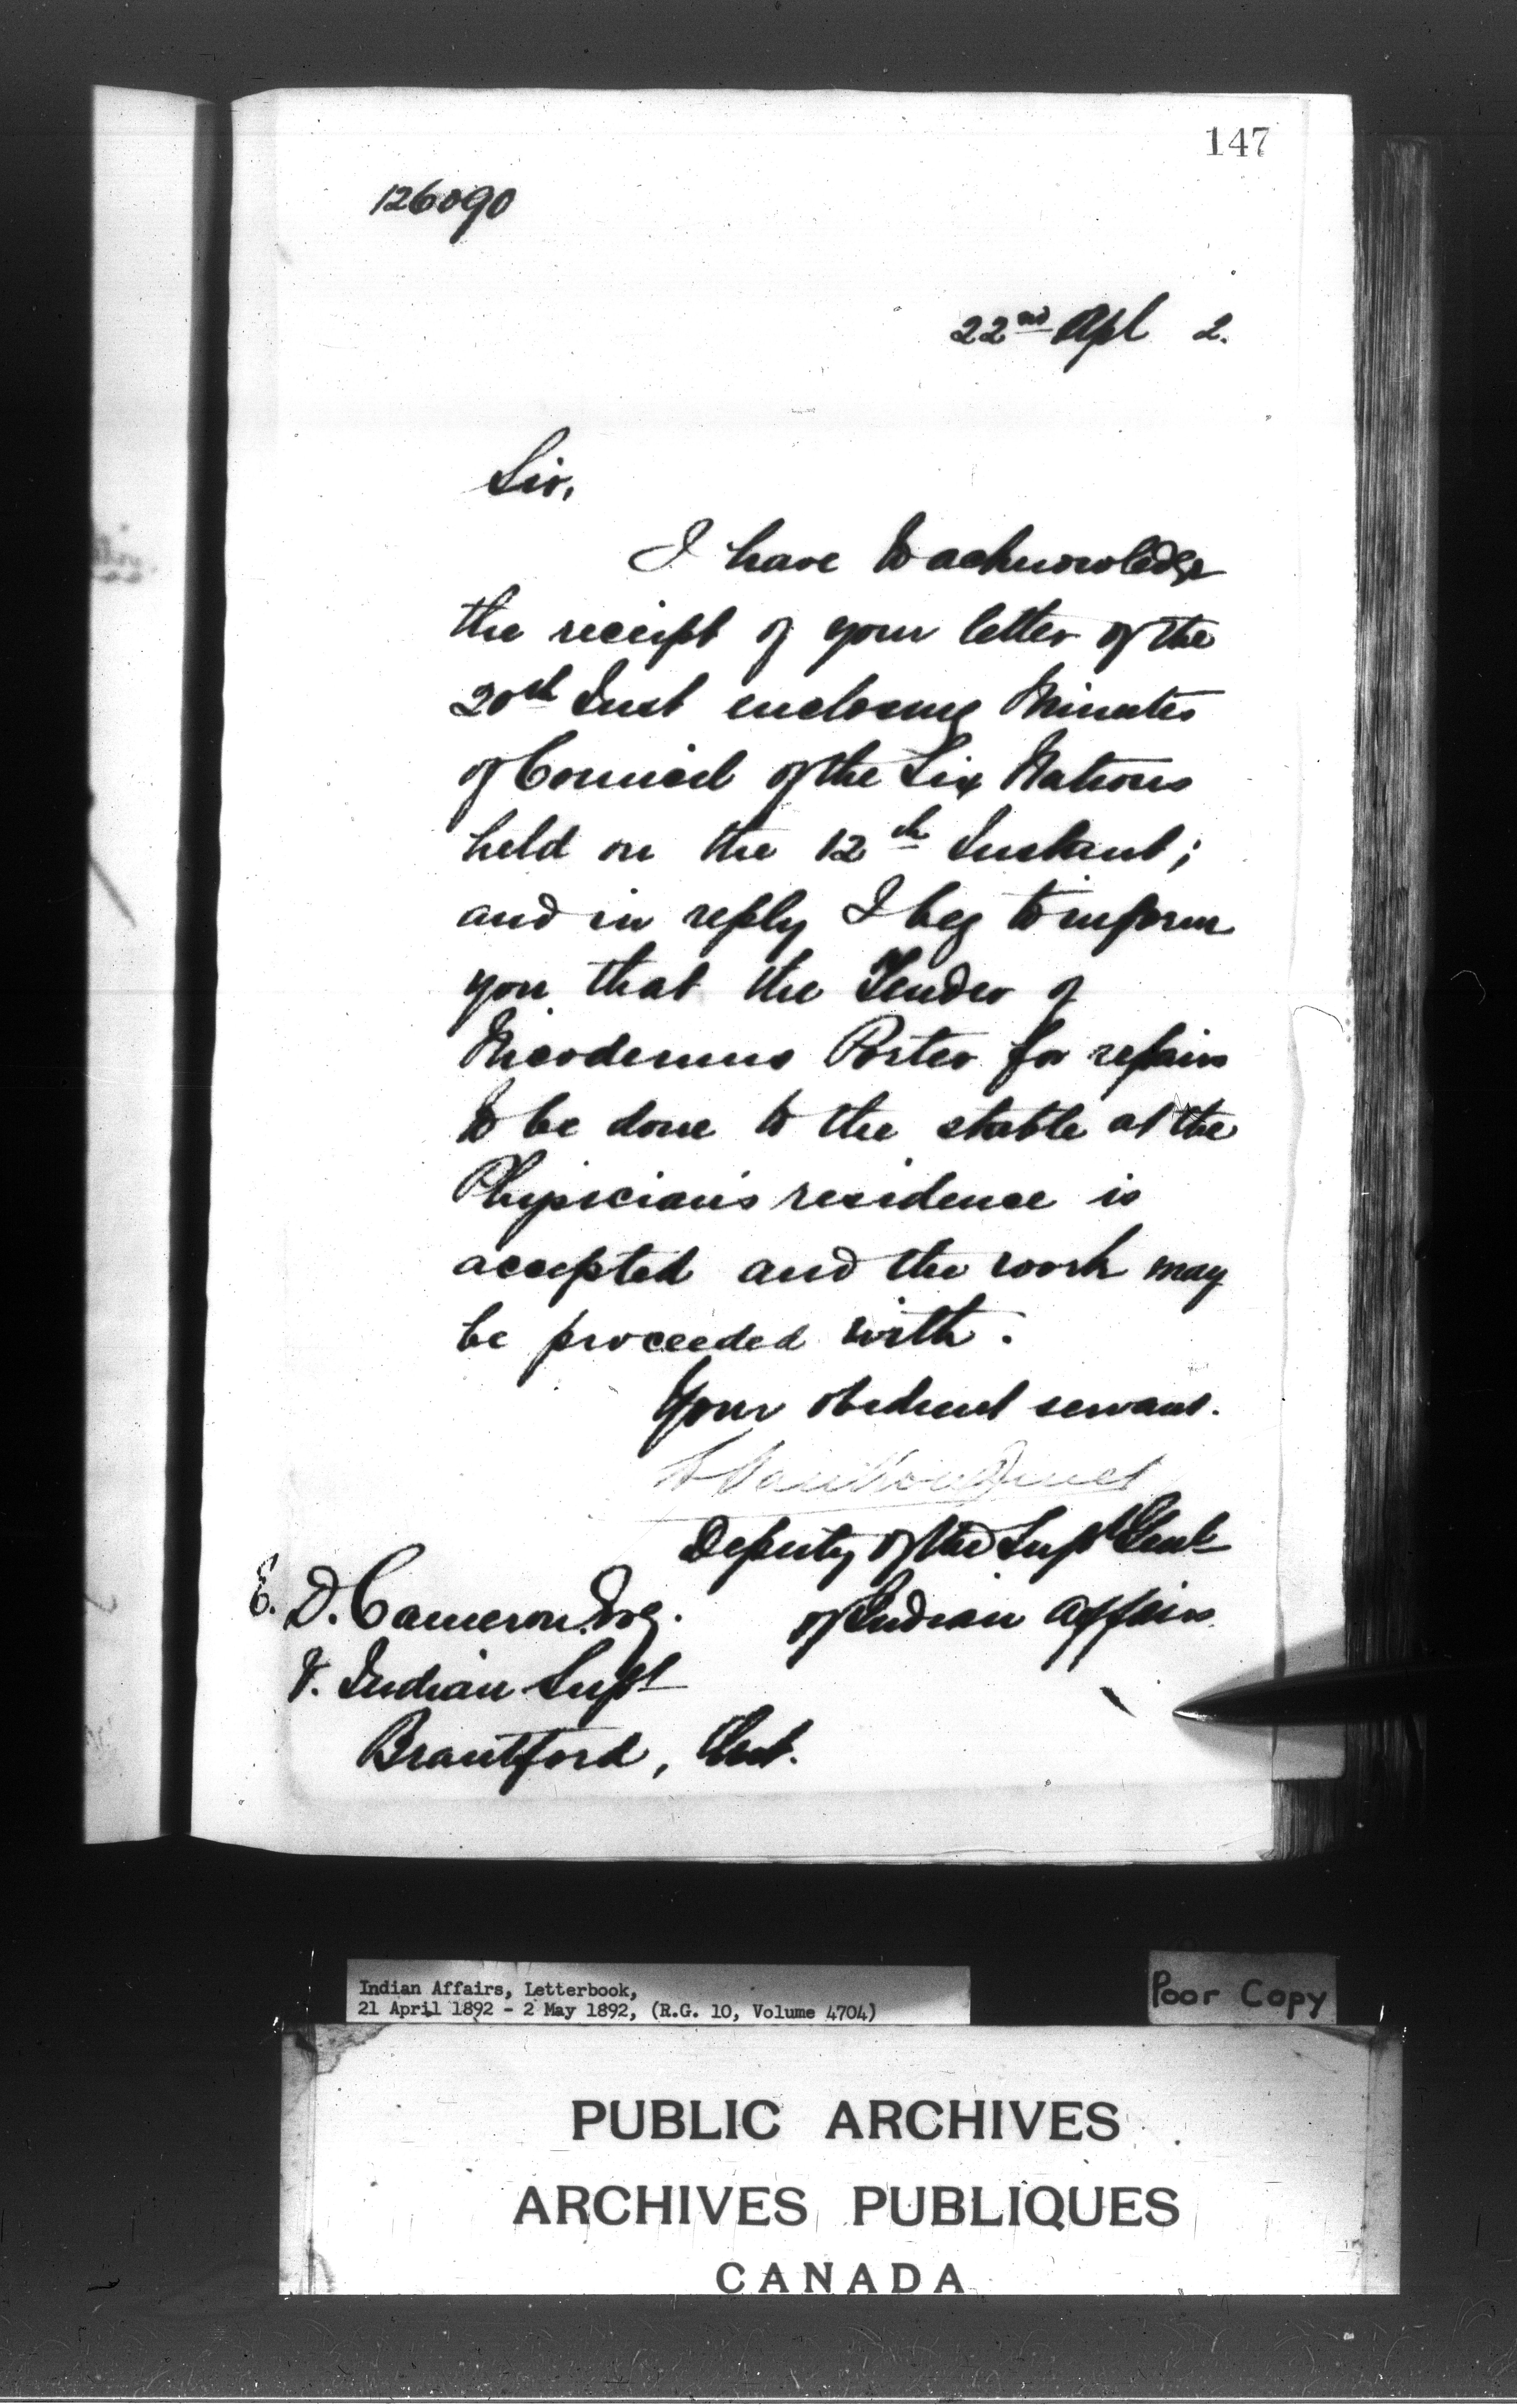 147
126090
22nd Apl 2.
Sir,
I have to acknowledge
the receipt of your letter of the
20th Inst enclosing Minutes
of Council of the Six Nations
held on the 12th Instant;
and in reply I beg to inform
you that the Tender of
Nicodemus Porter for repairs
to be done to the stable at the
Physician's residence is
accepted and the work may
be proceeded with.
Your obedient servant.
L Vankoughnet
Deputy of the Supt Genl
of Indian Affairs.
E. D. Cameron Esq.
V. Indian Supt
Brantford, Ont.
Indian Affairs, Letterbook,
21 April 1892 - 2 May 1892, (R.G. 10, Volume 4704)
Poor Copy
PUBLIC ARCHIVES
ARCHIVES PUBLIQUES
CANADA